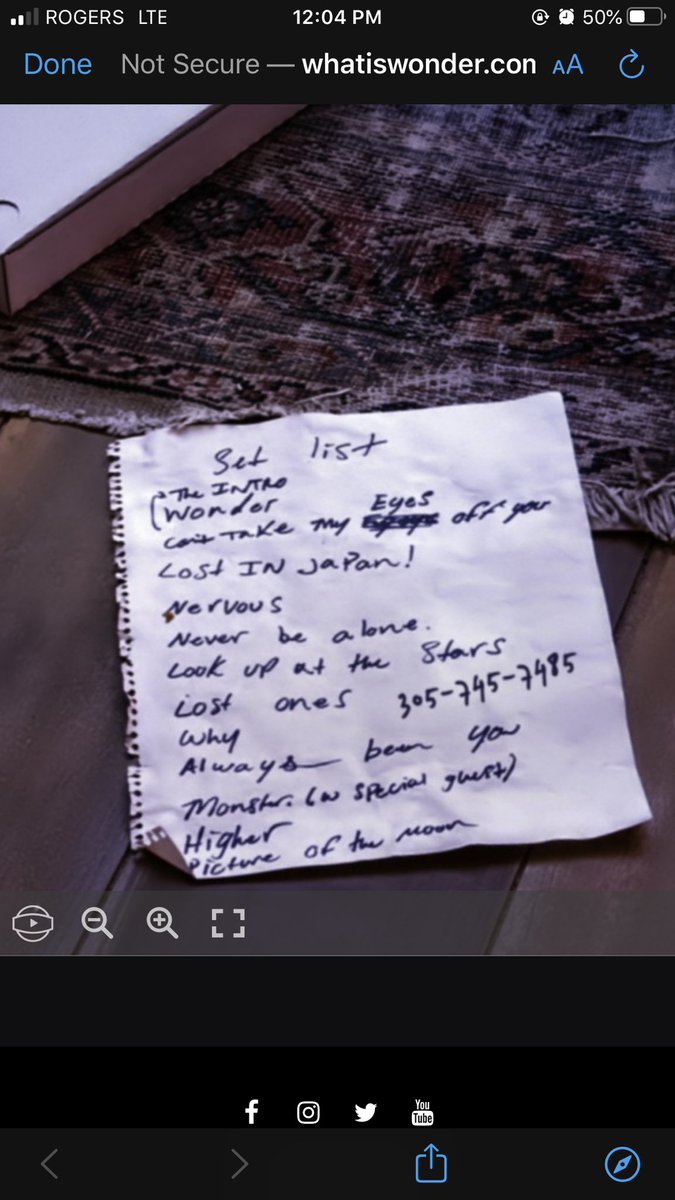 ROGERS LTE 12:04 PM 50%
Done Not Secure — whatiswonder.con AA
Set list
The INTRO
Wonder
can't Take my Eyes off you
Lost IN Japan!
Nervous
Never be alone.
Look up at the Stars
Lost ones 305-745-7485
Why
Always been you
Monster. (w special guest)
Higher
Picture of the moon
You
Tube